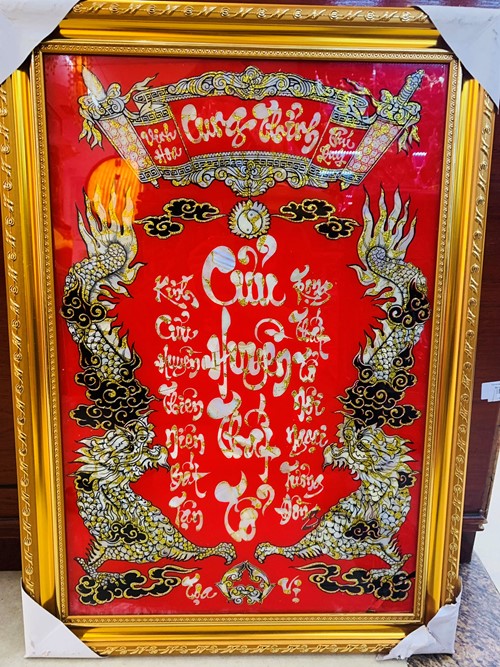 Vinh Hoa
Cung Thỉnh
Phú Quý
Kính Cửu Huyền Thiên Niên Bất Tận
Cửu Huyền Thất Tổ
Trọng Thất Tổ Nội Ngoại Tương Đồng
Tọa Vị